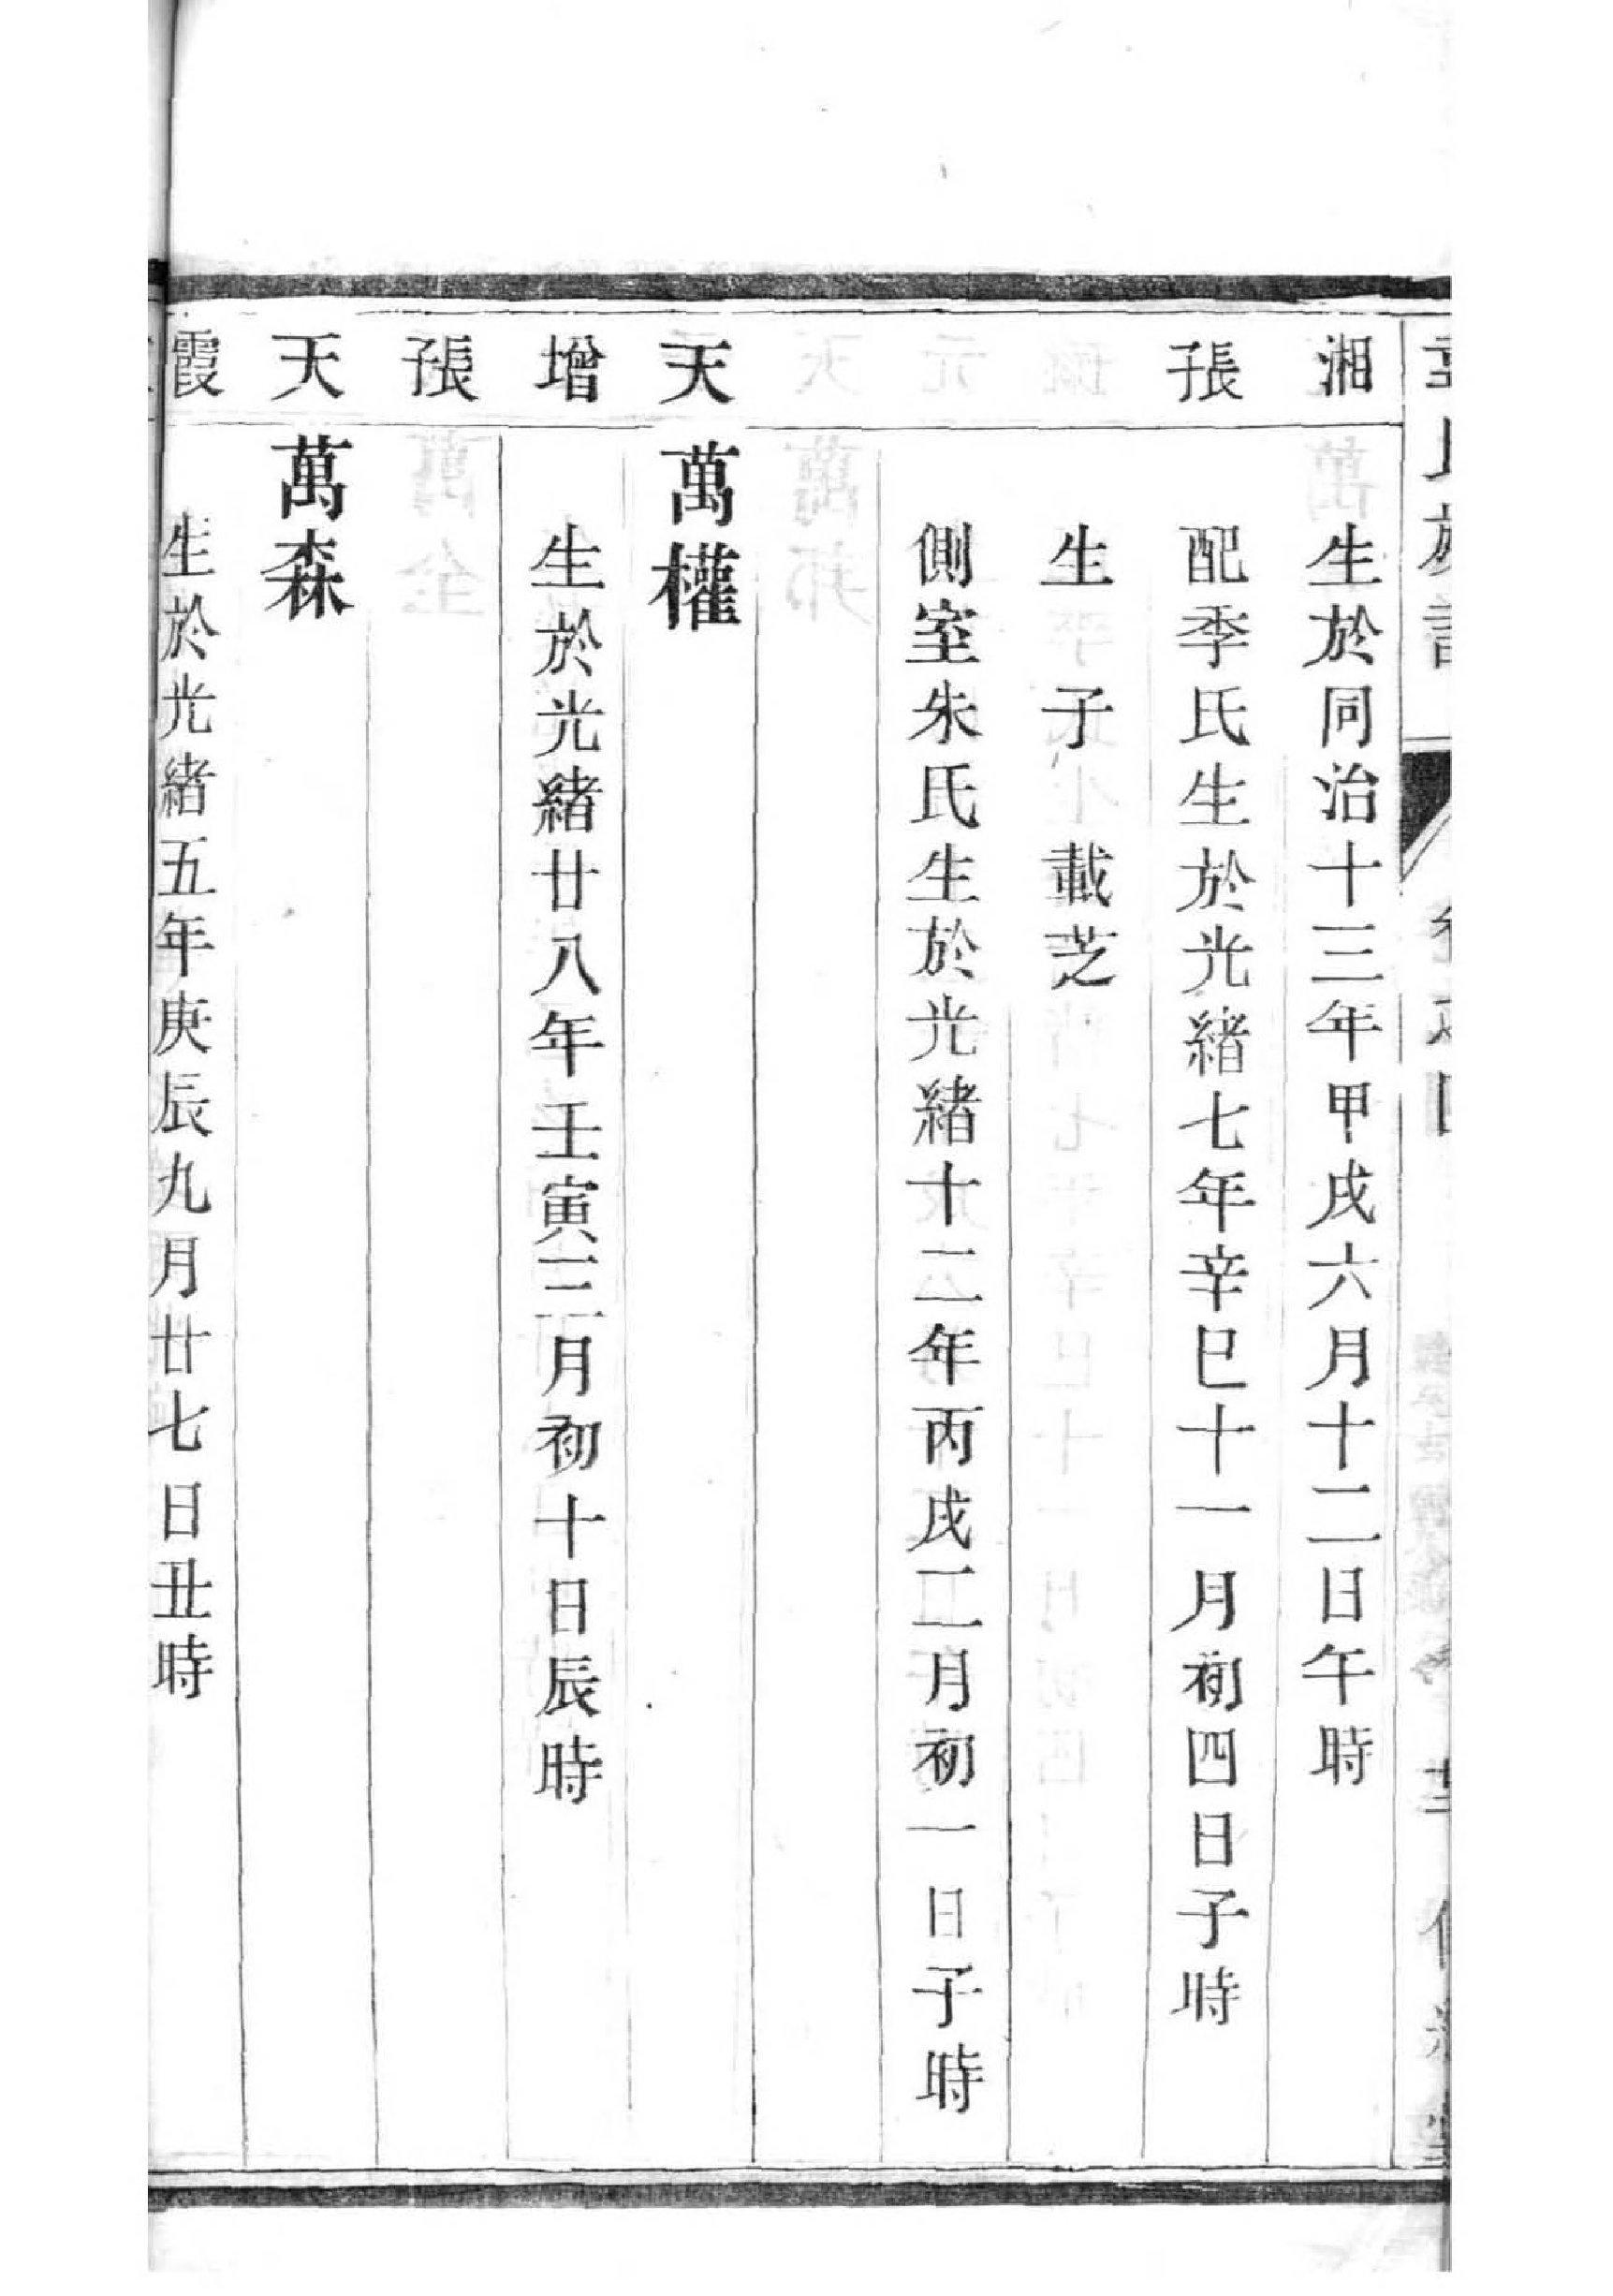 湘　生於同治十三年甲戌六月十二日午時
張子　配季氏生於光緒七年辛巳十一月初四日子時
生子　載芝
側室朱氏生於光緒十二年丙戌二月初一日子時
天　萬權
增　生於光緒廿八年壬寅三月初十日辰時
張子
天　萬森
霞　生於光緒五年庚辰九月廿七日丑時